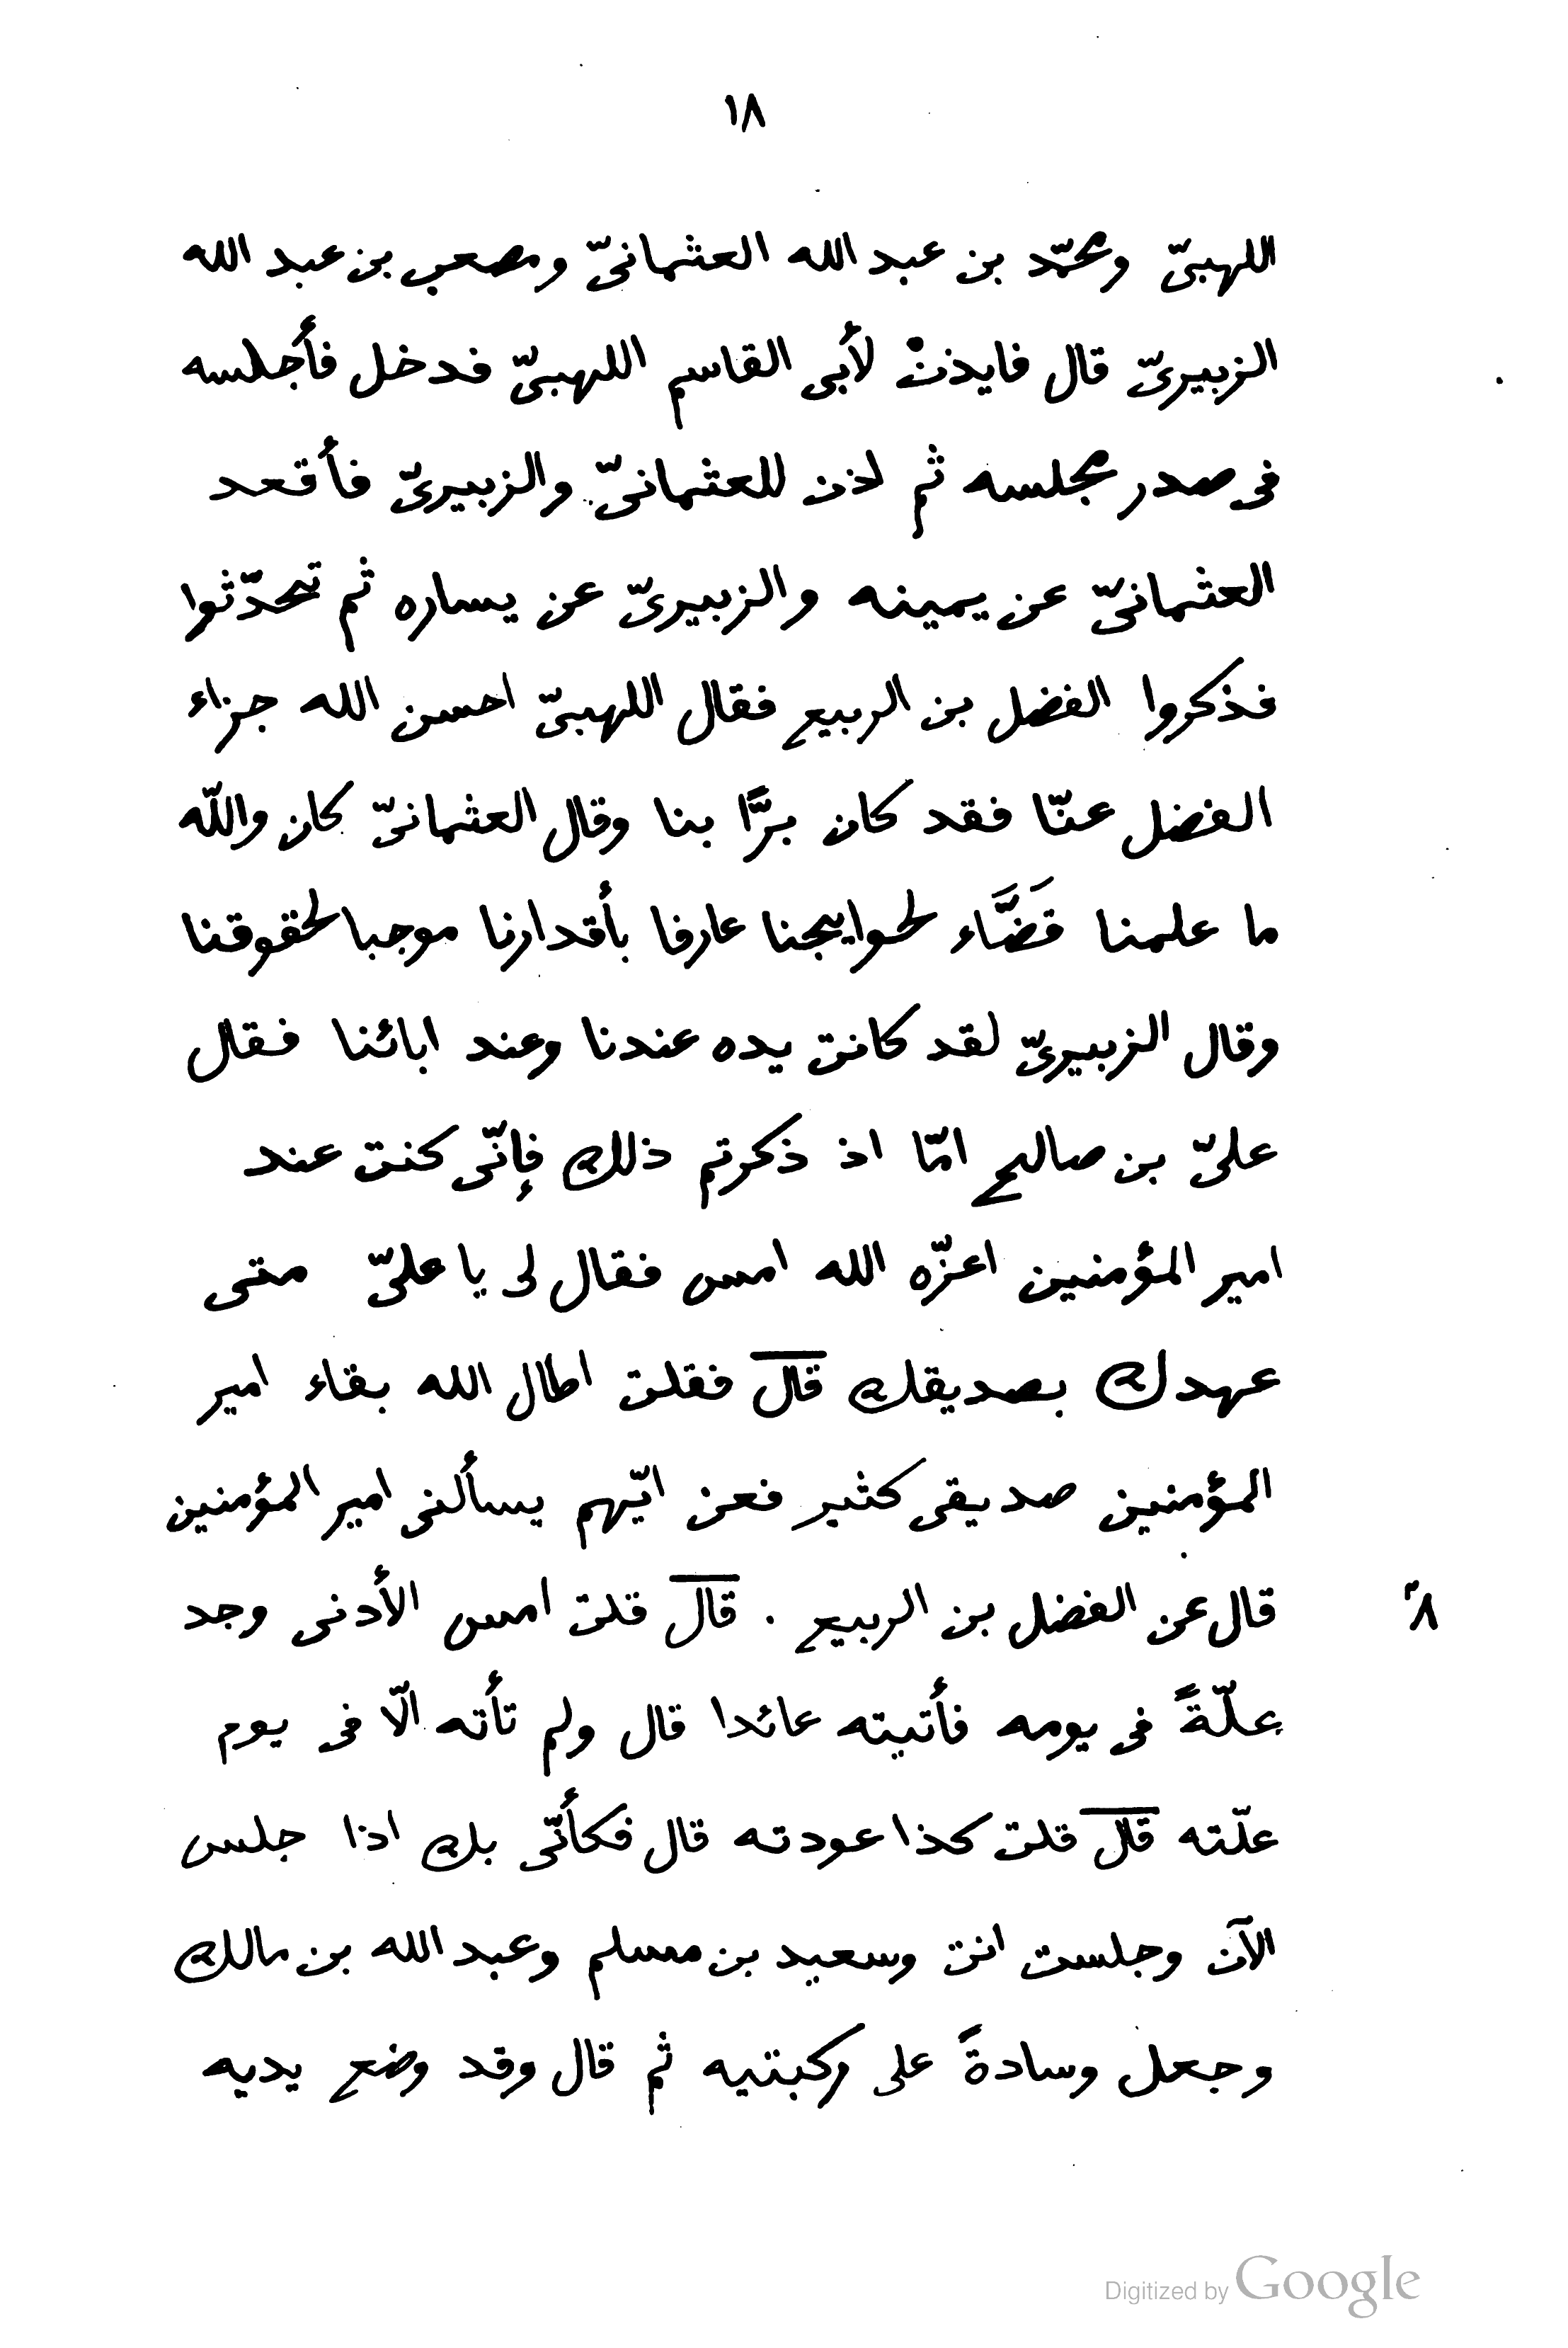 ١٨
اللهبىّ ومحمّد بن عبد الله العثمانىّ ومصعب بن عبد الله
الزبيرىّ قال فايذنْ لأبى القاسم اللهبىّ فدخل فأجلسه
فى صدر مجلسه ثم اذن للعثمانىّ والزبيرىّ فأقعد
العثمانىّ عن يمينه والزبيرىّ عن يساره ثم تحدّثوا
فذكروا الفضل بن الربيع فقال اللهبىّ احسن الله جزاء
الفضل عنّا فقد كان برًّا بنا وقال العثمانىّ كان واللّه
ما علمنا قَضَّاء لحوايجنا عارفا بأقدارنا موجبا لحقوقنا
وقال الزبيرىّ لقد كانت يده عندنا وعند ابائنا فقال
علىّ بن صالح امّا اذ ذكرتم ذلك فإنّى كنت عند
امير المؤمنين اعزّه الله امس فقال لى يا علىّ متى
عهدك بصديقك قال فقلت اطال الله بقاء امير
المؤمنين صديقى كثير فعن ايّهم يسألنى امير المؤمنين
قال عن الفضل بن الربيع . قال قلت امس الأدنى وجد
علّةً فى يومه فأتيته عائدا قال ولم تأته الّا فى يوم
علّته قال قلت كذا عودته قال فكأنّى بك اذا جلس
الآن وجلست انت وسعيد بن مسلم وعبد الله بن مالك
وجعل وسادةً على ركبتيه ثم قال وقد وضع يديه
Digitized by Google